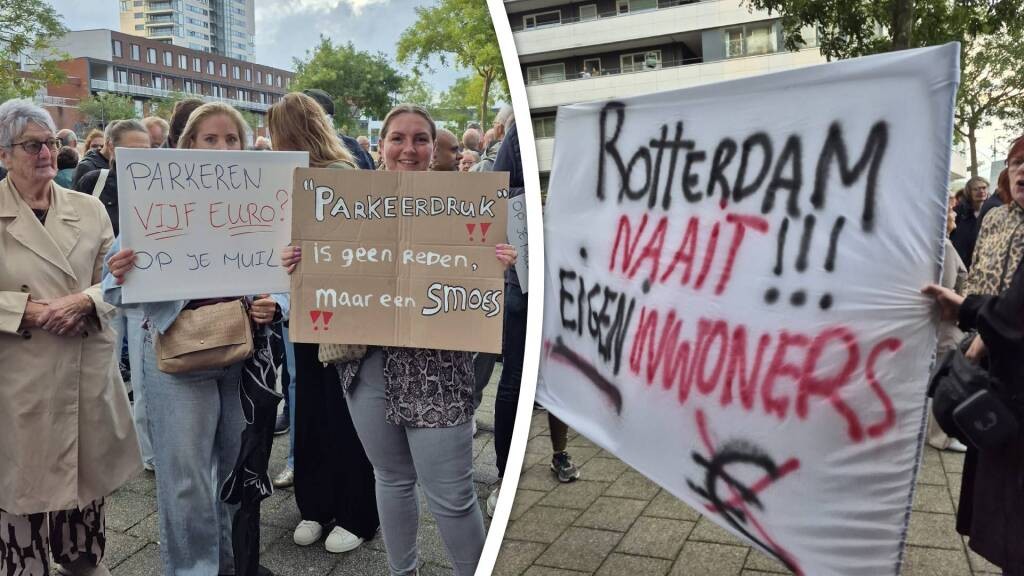 PARKEREN
VIJF EURO?
OP JE MUIL
"PARKEERDRUK"
!!
is geen REDEN,
maar een SMOES
!!
ROTTERDAM
NAAIT !!!
EIGEN INWONERS